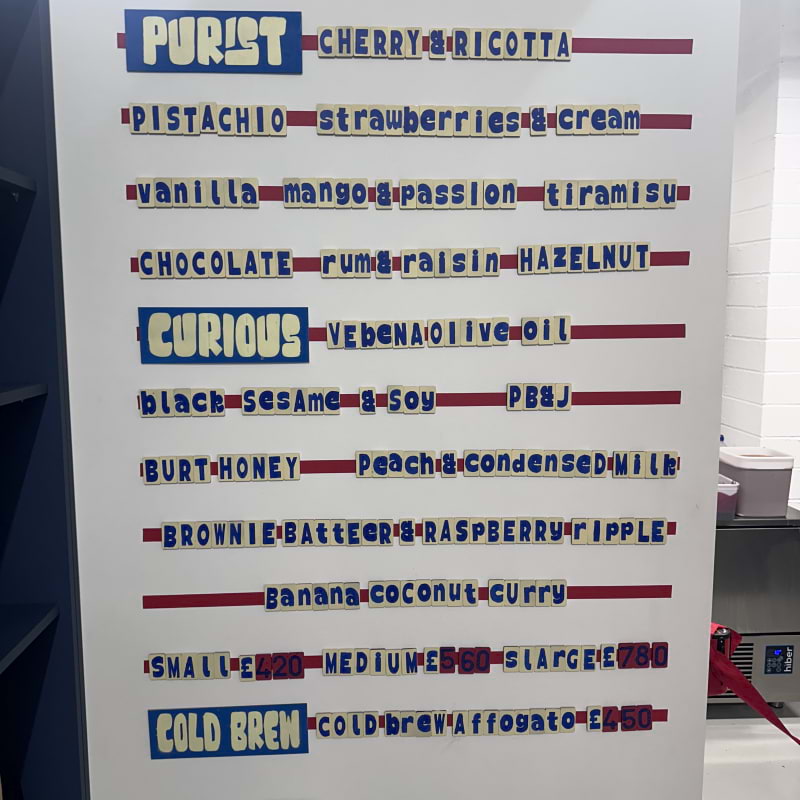 PURIST CHERRY & RICOTTA
PISTACHIO strawberries & cream
vanilla mango & passion tiramisu
CHOCOLATE rum & raisin HAZELNUT
CURIOUS VEbeNA Olive oil
black SesAme & Soy PB&J
BURT HONEY Peach & condenseD Milk
BROWNIE BAtteeR & RASpBERRy rIPPLE
Banana coconut cUrry
SMAll £420 MEDIUM £560 slArGE £780
COLD BREW COlD brew Affogato £450
hiber